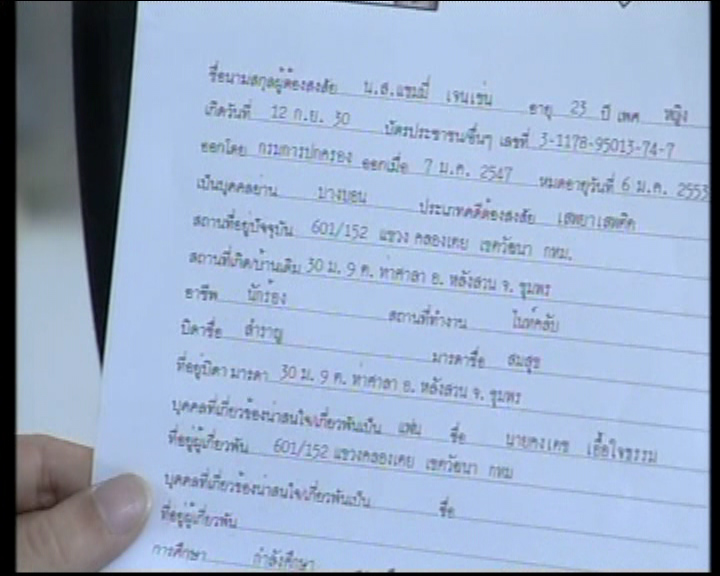 ชื่อนามสกุลผู้ต้องสงสัย น.ส.แชมมี่ เจนเช่น อายุ 23 ปี เพศ หญิง
เกิดวันที่ 12 ก.ย. 30 บัตรประชาชน/อื่นๆ เลขที่ 3-1178-95013-74-7
ออกโดย กรมการปกครอง ออกเมื่อ 7 ม.ค. 2547 หมดอายุวันที่ 6 ม.ค. 2553
เป็นบุคคลย่าน บางบอน ประเภทคดีต้องสงสัย เสพยาเสพติด
สถานที่อยู่ปัจจุบัน 601/152 แขวง คลองเตย เขตวัฒนา กทม.
สถานที่เกิด/บ้านเดิม 30 ม. 9 ต. ท่าศาลา อ. หลังสวน จ. ชุมพร
อาชีพ นักร้อง สถานที่ทำงาน ไนท์คลับ
บิดาชื่อ สำราญ มารดาชื่อ สมสุข
ที่อยู่บิดา มารดา 30 ม. 9 ต. ท่าศาลา อ. หลังสวน จ. ชุมพร
บุคคลที่เกี่ยวข้องน่าสนใจ/เกี่ยวพันเป็น แฟน ชื่อ นายคงเดช เอื้อใจธรรม
ที่อยู่ผู้เกี่ยวพัน 601/152 แขวงคลองเตย เขตวัฒนา กทม
บุคคลที่เกี่ยวข้องน่าสนใจ/เกี่ยวพันเป็น ชื่อ
ที่อยู่ผู้เกี่ยวพัน
การศึกษา กำลังศึกษา